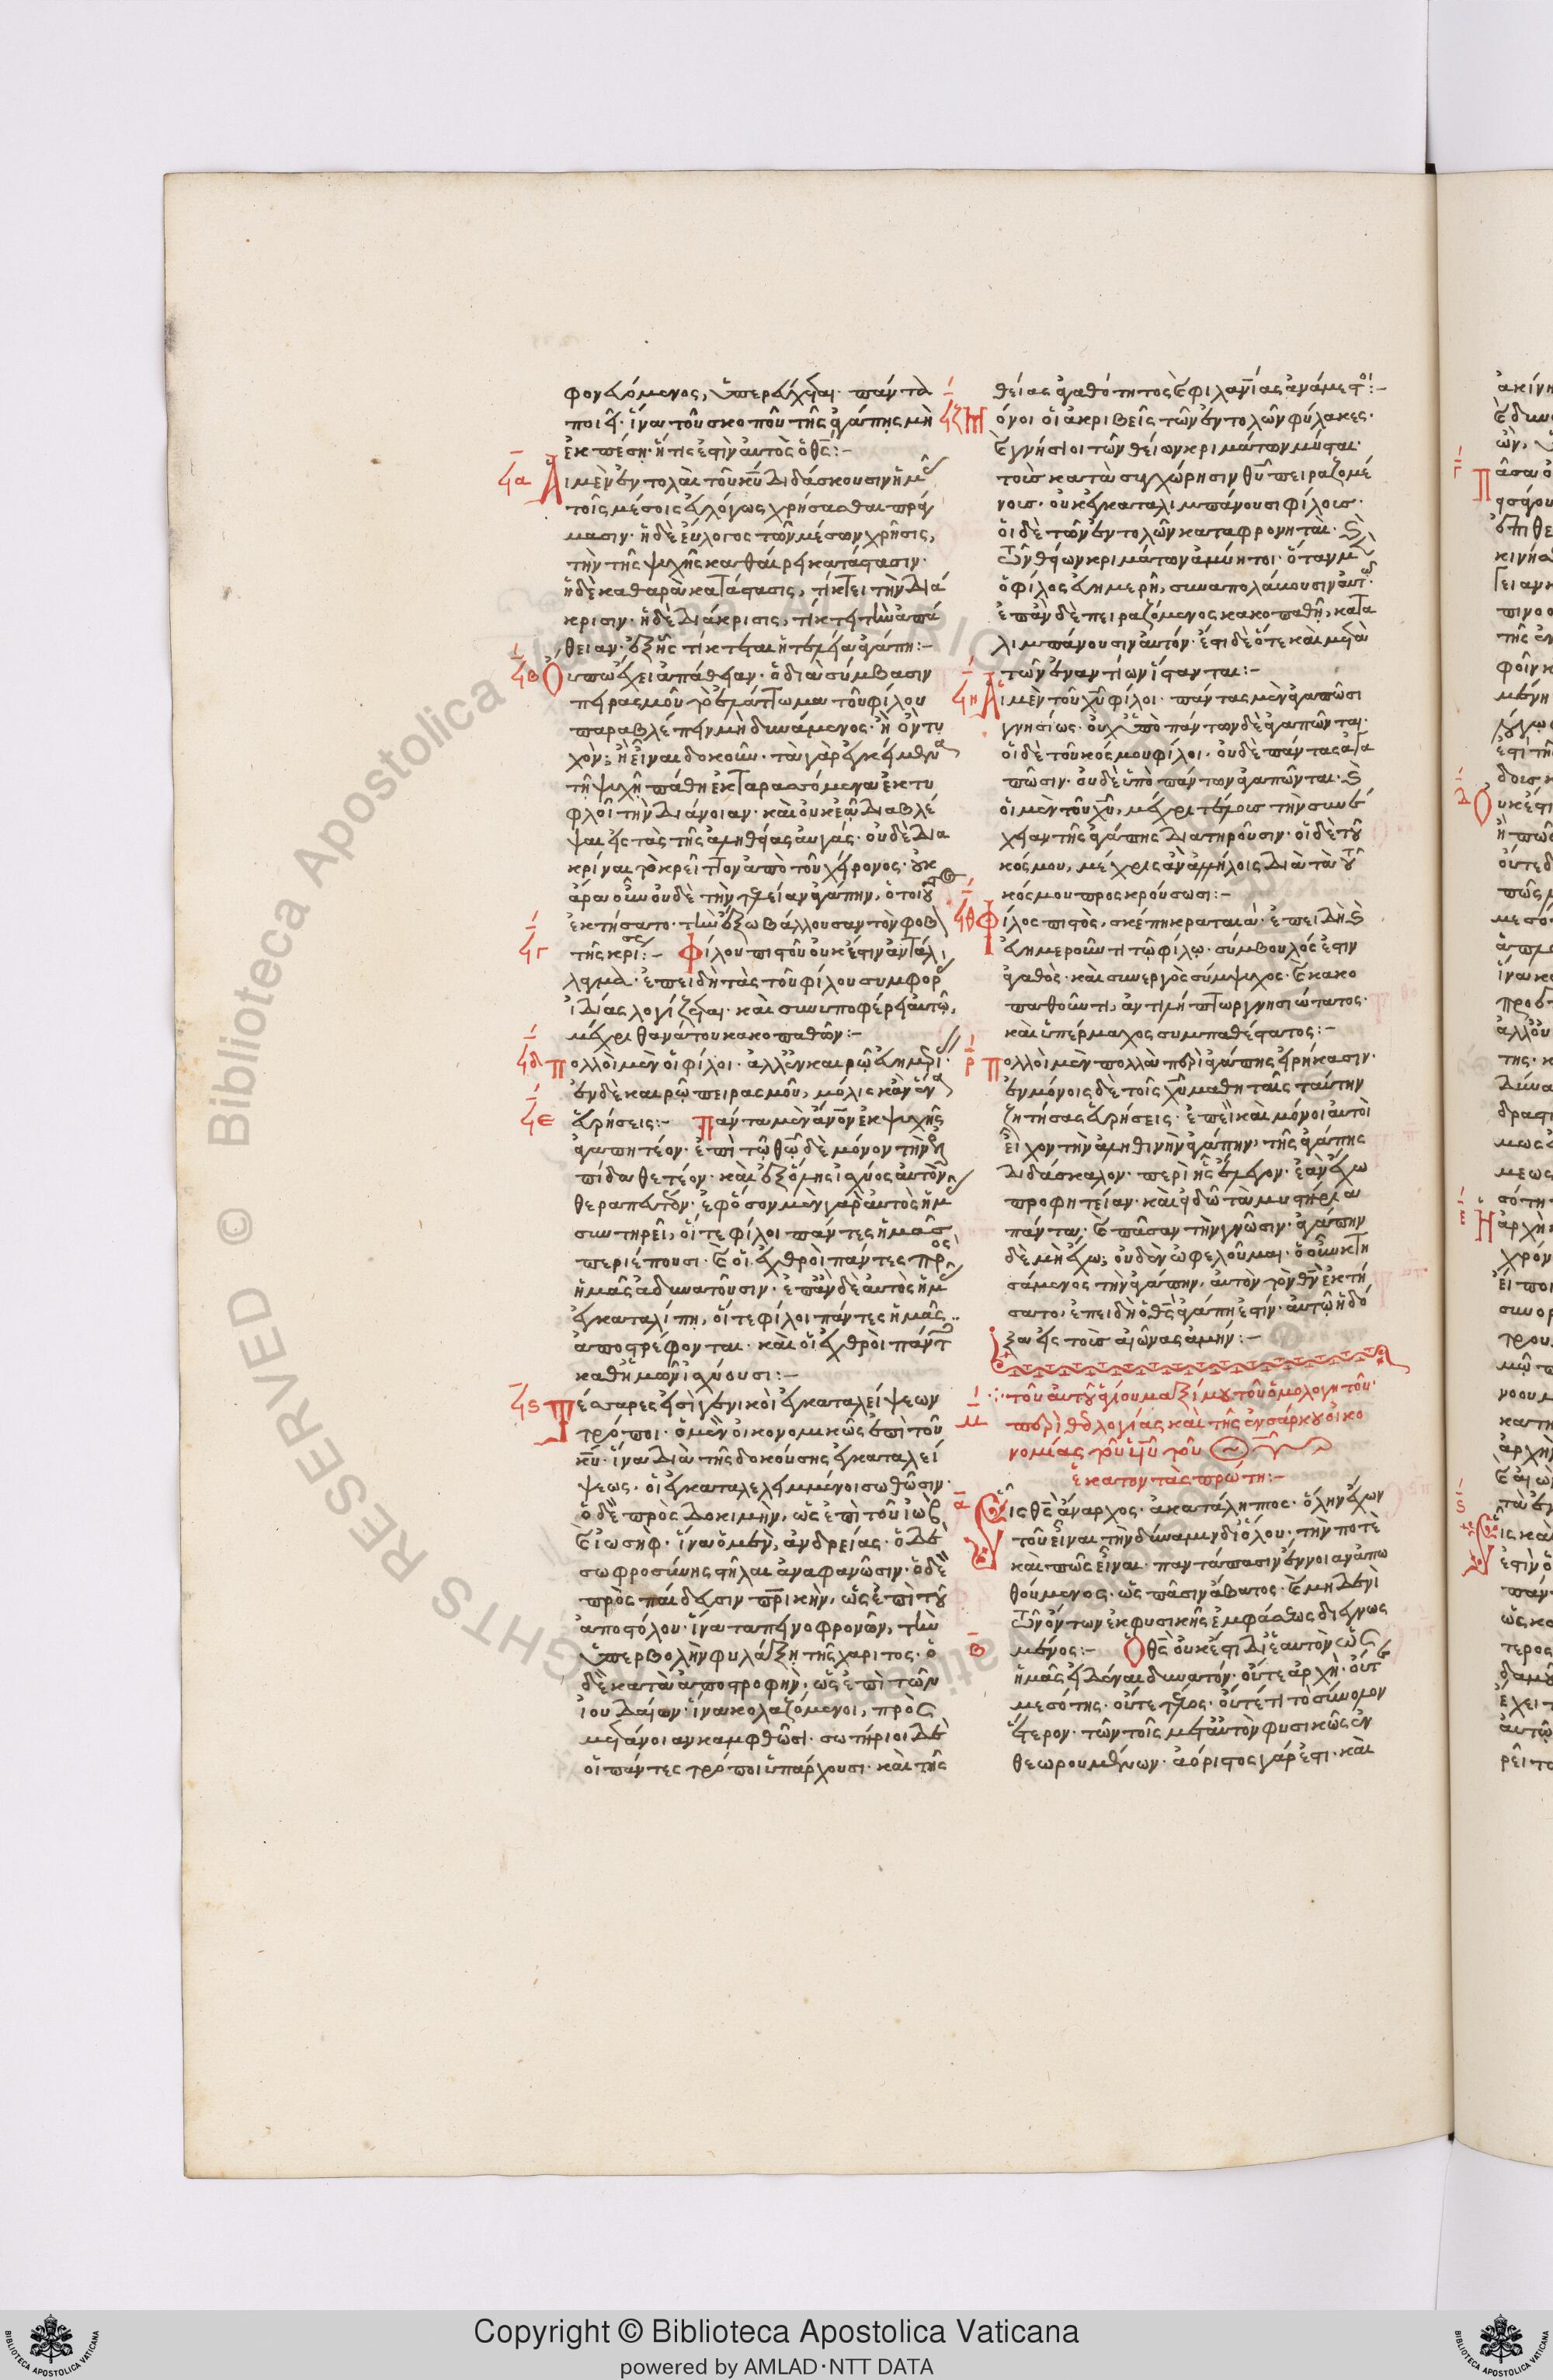 φονευόμενος, ὑπερεύχεται. πάντα
ποιεῖ. ἵνα τοῦ σκοποῦ τῆς ἀγάπης μὴ
ἐκπέσῃ. ἥτις ἐστὶν αὐτὸς ὁ θς:-
ϟα Αἱ μὲν ἐντολαὶ τοῦ κυ διδάσκουσιν ἡμ
τοῖς μέσοις εὐλόγως χρήσασθαι πράγ
μασιν. ἡ δὲ εὔλογος τῶν μέσων χρῆσις,
τὴν τῆς ψυχῆς καθαίρει κατάστασιν.
ἡ δὲ καθαρὰ κατάστασις, τίκτει τὴν διά
κρισιν. ἡ δὲ διάκρισις, τίκτει τὴν ἀπά
θειαν. ἐξ ἧς τίκτεται ἡ τελεία ἀγάπη:-
ϟβ Οὔπω ἔχει ἀπάθειαν. ὁ διὰ σύμβασιν
πειρασμοῦ τὸ ἐλάττωμα τοῦ φίλου
παραβλέπειν μὴ δυνάμενος. ἢ ὂν τυ
χὸν; ἢ εἶναι δοκοῦν. τὰ γὰρ ἐγκείμενα
τῇ ψυχῇ πάθη ἐκταρασσόμενα ἐκτυ
φλοῖ τὴν διάνοιαν. καὶ οὐκ ἐῶν διαβλέ
ψαι εἰς τὰς τῆς ἀληθείας αὐγάς. οὐδὲ δια
κρίναι τὸ κρεῖττον ἀπὸ τοῦ χείρονος. οὐκ
ἄρα οὖν οὐδὲ τὴν τελείαν ἀγάπην, ὁ τοιοῦτος
ἐκτήσατο. τὴν ἔξω βάλλουσαν τὸν φοβ
ϟγ τῆς κρίσε:- Φίλου πιστοῦ οὐκ ἔστιν ἀντάλ
λαγμα. ἐπειδὴ τὰς τοῦ φίλου συμφορ
ἰδίας λογίζεται. καὶ συνυποφέρει αὐτῷ,
μέχρι θανάτου κακοπαθῶν:-
ϟδ Πολλοὶ μὲν οἱ φίλοι. ἀλλ' ἐν καιρῷ εὐημερί.
ἐν δὲ καιρῷ πειρασμοῦ, μόλις κἂν ἕνα
ϟε εὑρήσεις:- Πάντα μὲν ἄνον ἐκ ψυχῆς
ἀγαπητέον. ἐπὶ τῷ θῷ δὲ μόνον τὴν ἐλ
πίδα θετέον. καὶ ἐξ ὅλης ἰσχύος αὐτὸν
θεραπευτέον. ἐφ' ὅσον μὲν γὰρ αὐτὸς ἡμ
συντηρεῖ, οἵ τε φίλοι πάντες ἡμᾶς
περιέπουσι. καὶ οἱ ἐχθροὶ πάντες προς
ἡμᾶς ἀδυνατοῦσιν. ἐπὰν δὲ αὐτὸς ἡμ
ἐγκαταλίπῃ, οἵ τε φίλοι πάντες ἡμᾶς
ἀποστρέφονται. καὶ οἱ ἐχθροὶ πάντ
καθ' ἡμῶν ἰσχύουσι:-
ϟς Τέσσαρες εἰσὶ γενικοὶ ἐγκαταλείψεων
τρόποι. ὁ μὲν οἰκονομικῶς ἐπὶ τοῦ
κυ. ἵνα διὰ τῆς δοκούσης ἐγκαταλεί
ψεως. οἱ ἐγκαταλελειμμένοι σωθῶσιν.
ὁ δὲ πρὸς δοκιμὴν, ὡς ἐπὶ τοῦ ἰὼβ
καὶ ἰωσήφ. ἵνα ὁ μὲν, ἀνδρείας. ὁ δὲ
σωφροσύνης στῆλαι ἀναφανῶσιν. ὁ δὲ
πρὸς παίδευσιν πρικὴν, ὡς ἐπὶ τοῦ
ἀποστόλου. ἵνα ταπεινοφρονῶν, τὴν
ὑπερβολὴν φυλάξῃ τῆς χάριτος. ὁ
δὲ κατὰ ἀποστροφὴν. ὡς ἐπὶ τῶν
ἰουδαίων. ἵνα κολαζόμενοι, πρὸς
μετάνοιαν καμφθῶσι. σωτήριοι δὲ
οἱ πάντες τρόποι ὑπάρχουσι. καὶ τῆς
θείας ἀγαθότητος καὶ φιλανίας ἀνάμεστοι:-
ϟζ Μόνοι οἱ ἀκριβεῖς τῶν ἐντολῶν φύλακες.
καὶ γνήσιοι τῶν θείων κριμάτων μύσται.
τοὺς κατὰ συγχώρησιν θυ πειραζομέ
νους. οὐκ ἐγκαταλιμπάνουσι φίλους.
οἱ δὲ τῶν ἐντολῶν καταφρονηταὶ. καὶ
τῶν θείων κριμάτων ἀμύητοι. ὅταν μὲν
ὁ φίλος εὐημερῇ, συναπολάβουσιν αὐτ.
ἐπὰν δὲ πειραζόμενος κακοπαθῇ, κατα
λιμπάνουσιν αὐτόν. ἔστι δὲ ὅτε καὶ μετὰ
τῶν ἐναντίων ἵστανται:-
ϟη Οἱ μὲν τοῦ χυ φίλοι. πάντας μὲν ἀγαπῶσι
γνησίως. οὐχ ὑπὸ πάντων δὲ ἀγαπῶνται.
οἱ δὲ τοῦ κόσμου φίλοι. οὐδὲ πάντας ἀγα
πῶσιν. οὐδὲ ὑπὸ πάντων ἀγαπῶνται. καὶ
οἱ μὲν τοῦ χυ, μέχρι τέλους τὴν συνέ
χειαν τῆς ἀγάπης διατηροῦσιν. οἱ δὲ τοῦ
κόσμου, μέχρις ἂν ἀλλήλοις διὰ τὰ τοῦ
κόσμου προσκρούσωσι:-
ϟθ Φίλος πιστὸς, σκέπη κραταιά. ἐπειδὴ καὶ
εὐημεροῦντι τῷ φίλῳ. σύμβουλός ἐστιν
ἀγαθὸς. καὶ συνεργὸς σύμψυχος. καὶ κακο
παθοῦντι, ἀντιλήπτωρ γνησιώτατος.
καὶ ὑπέρμαχος συμπαθέστατος:-
ρ Πολλοὶ μὲν πολλὰ περὶ ἀγάπης εἰρήκασιν.
ἐν μόνοις δὲ τοῖς χυ μαθηταῖς ταύτην
ζητήσας εὑρήσεις. ἐπεὶ καὶ μόνοι αὐτοὶ
εἶχον τὴν ἀληθινὴν ἀγάπην, τῆς ἀγάπης
διδάσκαλον. περὶ ἧς ἔλεγον. ἐὰν ἔχω
προφητείαν. καὶ εἰδῶ τὰ μυστήρια
πάντα. καὶ πᾶσαν τὴν γνῶσιν. ἀγάπην
δὲ μὴ ἔχω; οὐδὲν ὠφελοῦμαι. ὁ οὖν κτη
σάμενος τὴν ἀγάπην, αὐτὸν τὸν θν ἐκτή
σατο. ἐπειδὴ ὁ θς ἀγάπη ἐστίν. αὐτῷ ἡ δό
ξα εἰς τοὺς αἰῶνας ἀμήν:-
τοῦ αὐτοῦ ἁγίου μαξίμου τοῦ ὁμολογητοῦ
περὶ θεολογίας καὶ τῆς ἐνσάρκου οἰκο
νομίας τοῦ υἱοῦ τοῦ
ἑκατοντὰς πρώτη:-
α Εἷς θς ἄναρχος. ἀκατάληπτος. ὅλην ἔχων
τοῦ εἶναι τὴν δύναμιν δι' ὅλου. τὴν ποτὲ
καὶ πῶς εἶναι. παντάπασιν ἔννοιαν ἀπω
θούμενος. ὡς πᾶσιν ἄβατος. καὶ μηδενὶ
τῶν ὄντων ἐκ φυσικῆς ἐμφάσεως διεγνωσ
β μένος:- Ὁ θς οὐκ ἔστι δι' ἑαυτὸν ὡς
ἡμᾶς εἰδέναι δυνατόν. οὔτε ἀρχὴ. οὔτε
μεσότης. οὔτε τέλος. οὔτέ τι τὸ σύνολον
ἕτερον. τῶν τοῖς μετ' αὐτὸν φυσικῶς ἐν
θεωρουμένων. ἀόριστος γάρ ἐστι. καὶ
Copyright © Biblioteca Apostolica Vaticana
powered by AMLAD・NTT DATA